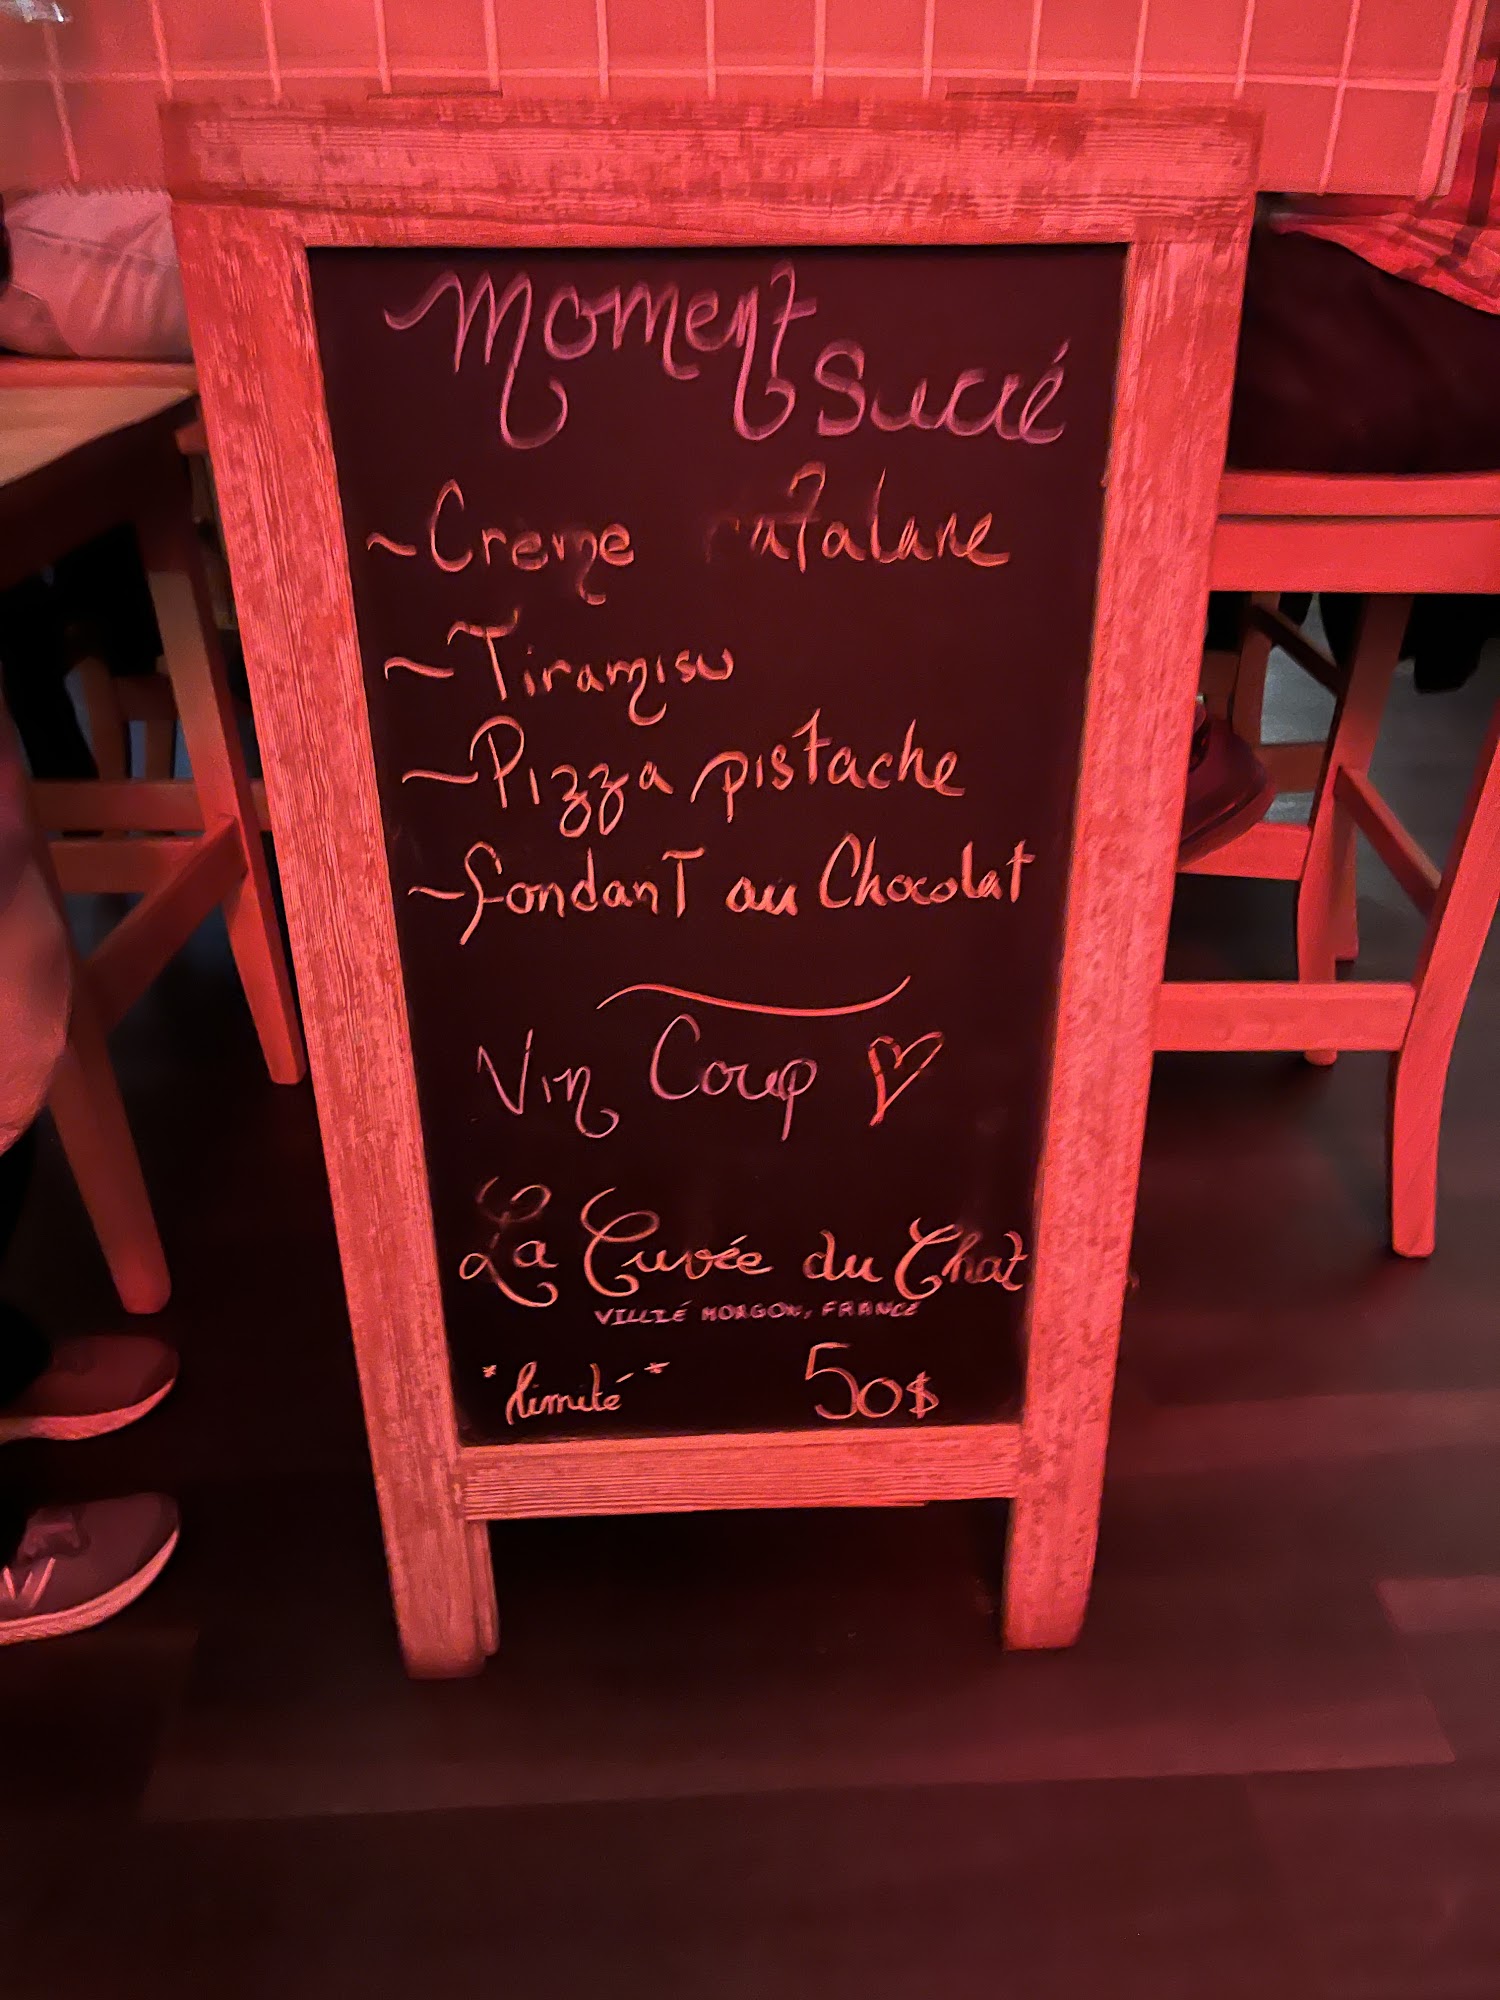 Moment
Sucré
~ Crème catalane
~ Tiramisu
~ Pizza pistache
~ fondant au Chocolat
Vin Coup ♡
La Cuvée du Chat
VILLIÉ MORGON, FRANCE
*limité* 50$